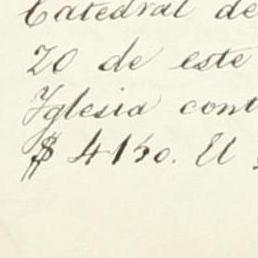 Catedral de
20 de este
Yglesia cont
$ 4150. El